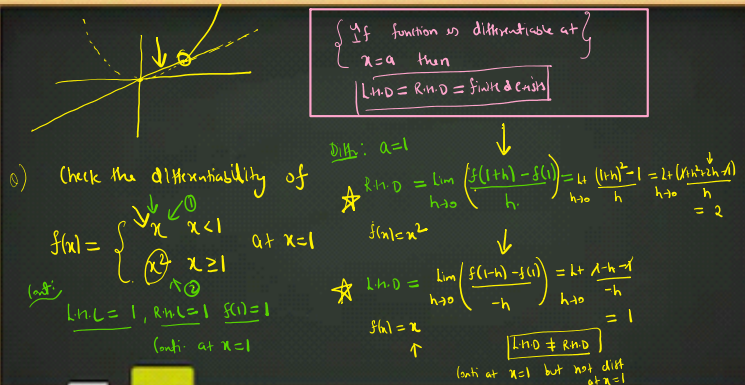 If function is differentiable at
x=a then
L.H.D = R.H.D = finite & exists
Q) Check the differentiability of
f(x) = { x x<1 ①
x² x≥1 ②
at x=1
Conti:
L.H.L = 1, R.H.L = 1 f(1) = 1
Conti. at x=1
Diff: a=1
R.H.D = Lim h→0 (f(1+h) - f(1) / h) = Lt h→0 (1+h)² - 1 / h = Lt h→0 (1+h²+2h-1) / h
= 2
f(x) = x²
L.H.D = Lim h→0 (f(1-h) - f(1) / -h) = Lt h→0 1-h-1 / -h
= 1
f(x) = x
L.H.D ≠ R.H.D
Conti at x=1 but not diff
at x=1